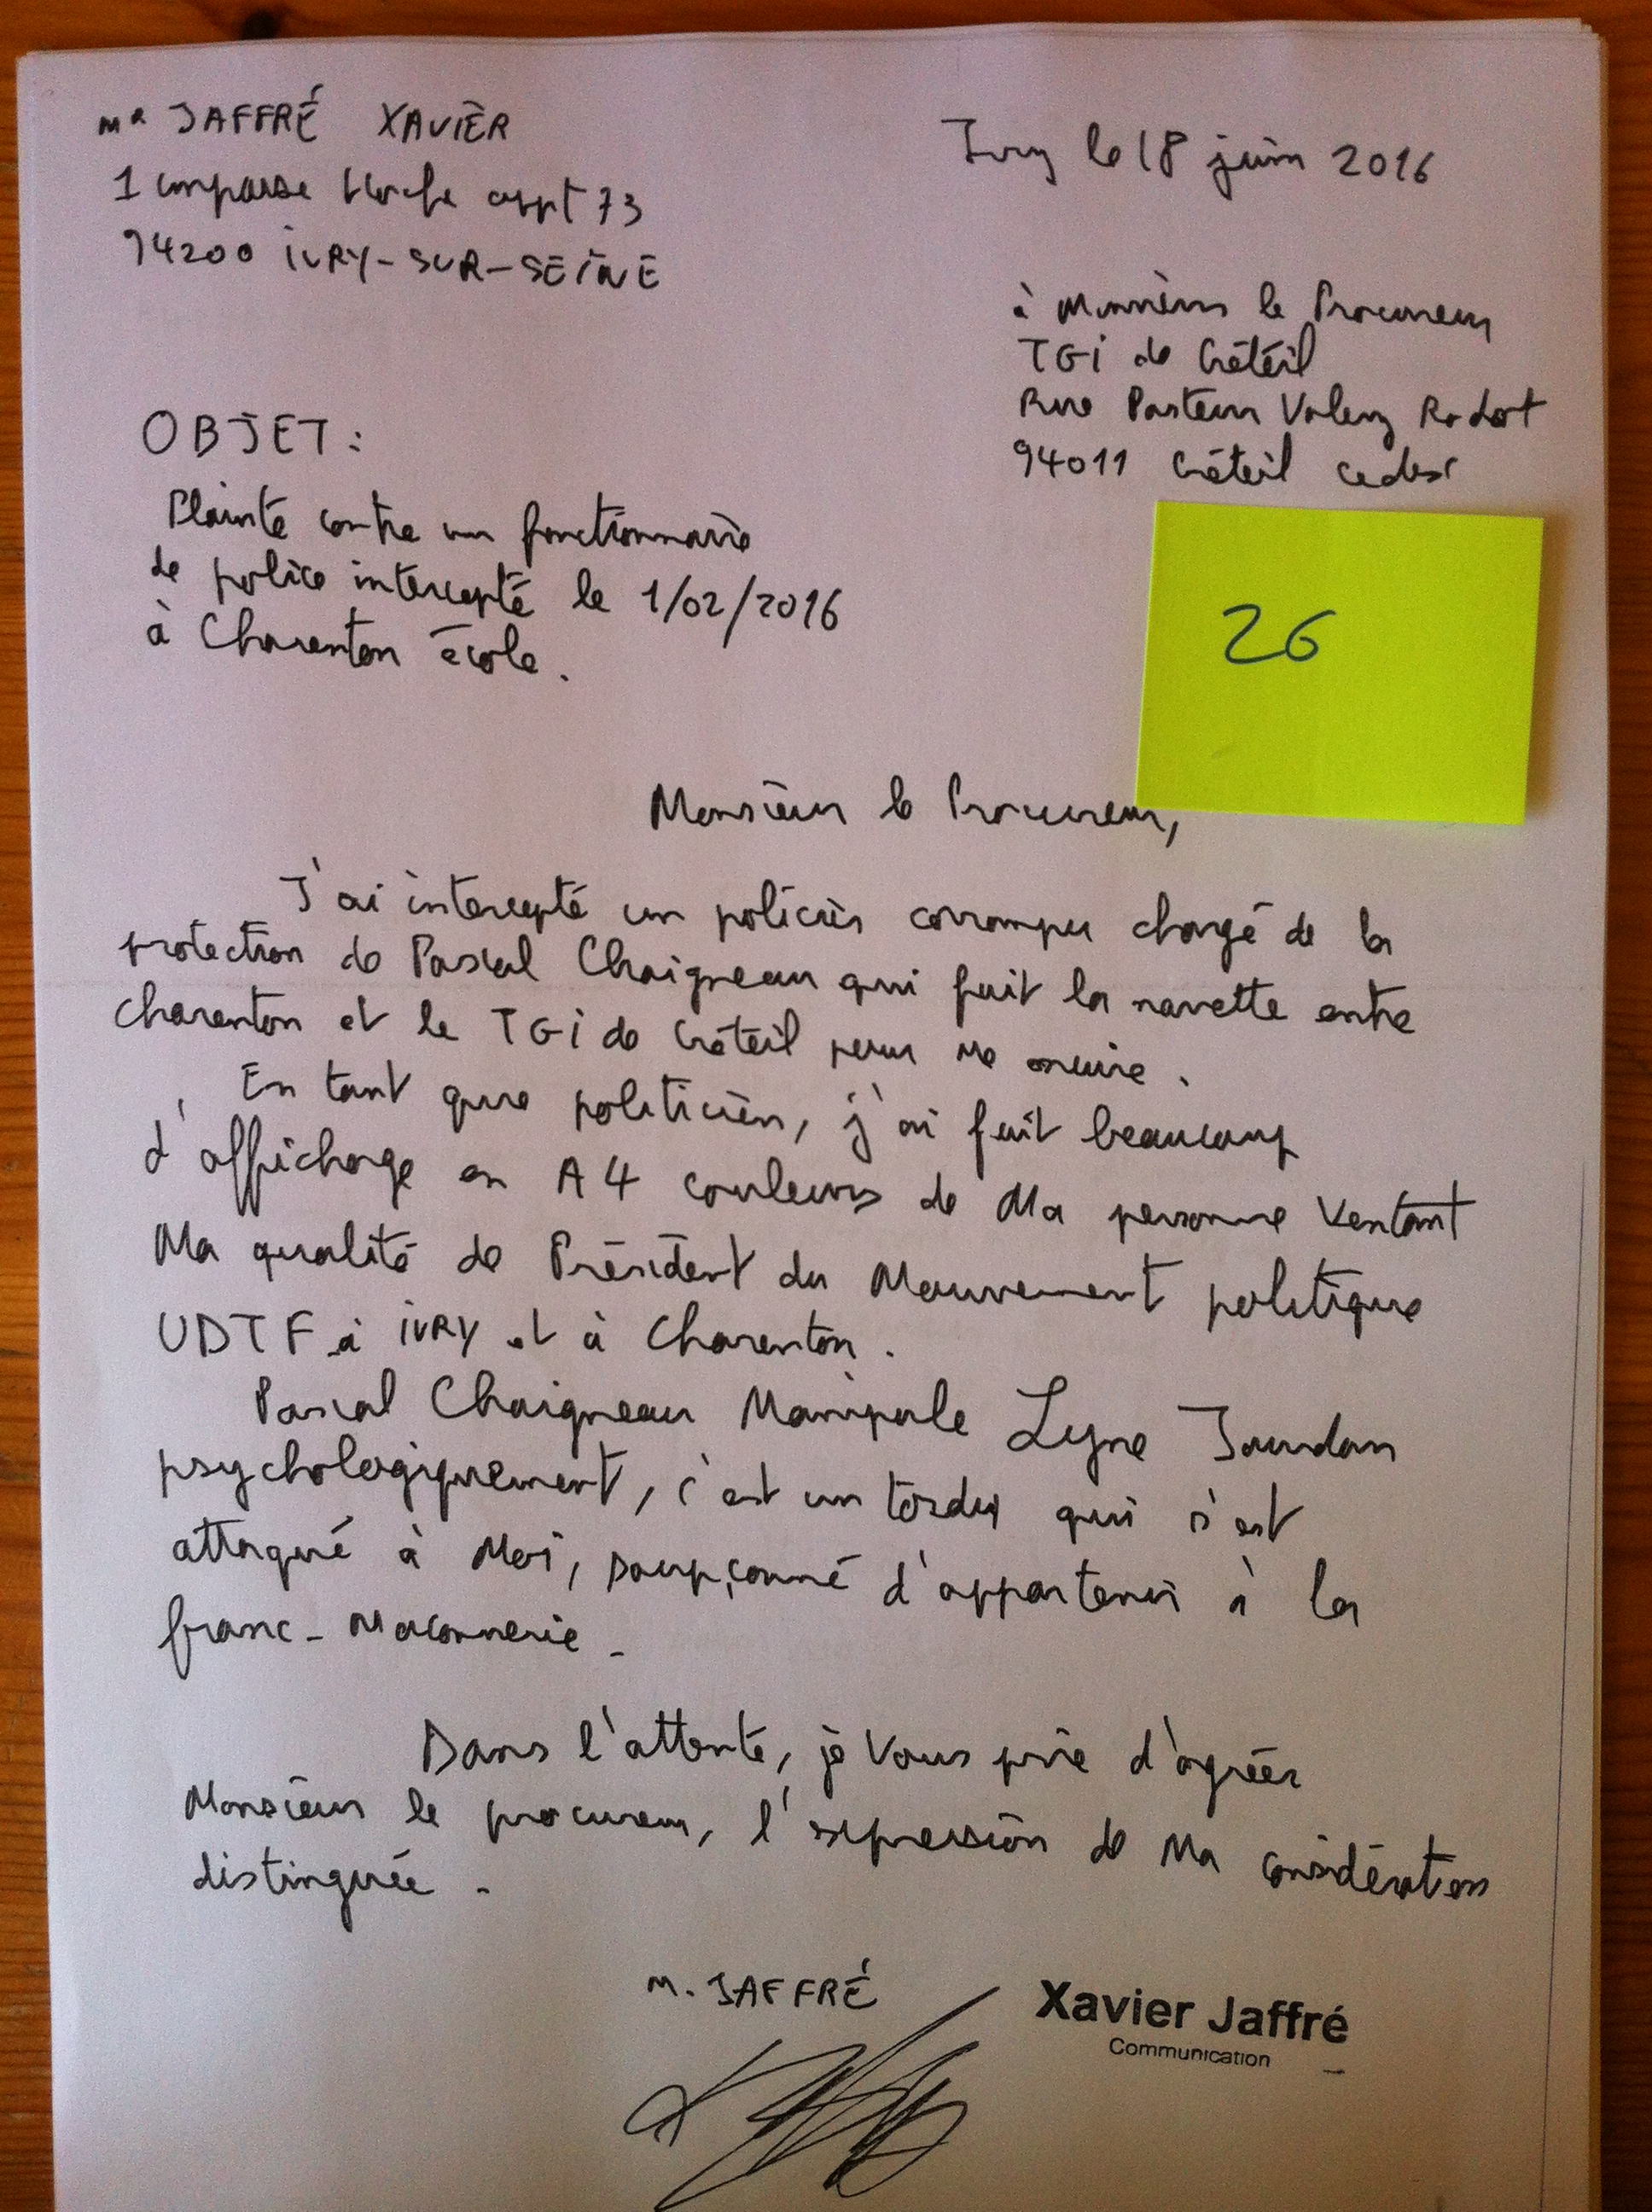 Mr JAFFRÉ XAVIER
1 impasse appt 73
94200 IVRY-SUR-SEINE
Ivry le 18 juin 2016
à Monsieur le Procureur
TGI de Créteil
Rue Pasteur Valery Radot
94011 Créteil cedex
OBJET :
Plainte contre un fonctionnaire
de police intercepté le 1/02/2016
à Charenton école.
26
Monsieur le Procureur,
J'ai intercepté un policier corrompu chargé de la
protection de Pascal Chaigneau qui fait la navette entre
Charenton et le TGI de Créteil pour me nuire.
En tant que politicien, j'ai fait beaucoup
d'affichage en A4 couleurs de Ma personne Ventant
Ma qualité de Président du Mouvement politique
UDTF à IVRY et à Charenton.
Pascal Chaigneau Manipule Lyne Jourdan
psychologiquement, c'est un tordu qui s'est
attaqué à Moi, soupçonné d'appartenir à la
franc-Maconnerie -
Dans l'attente, je Vous prie d'agréer
Monsieur le procureur, l'expression de Ma considération
distinguée -
M. JAFFRÉ
Xavier Jaffré
Communication